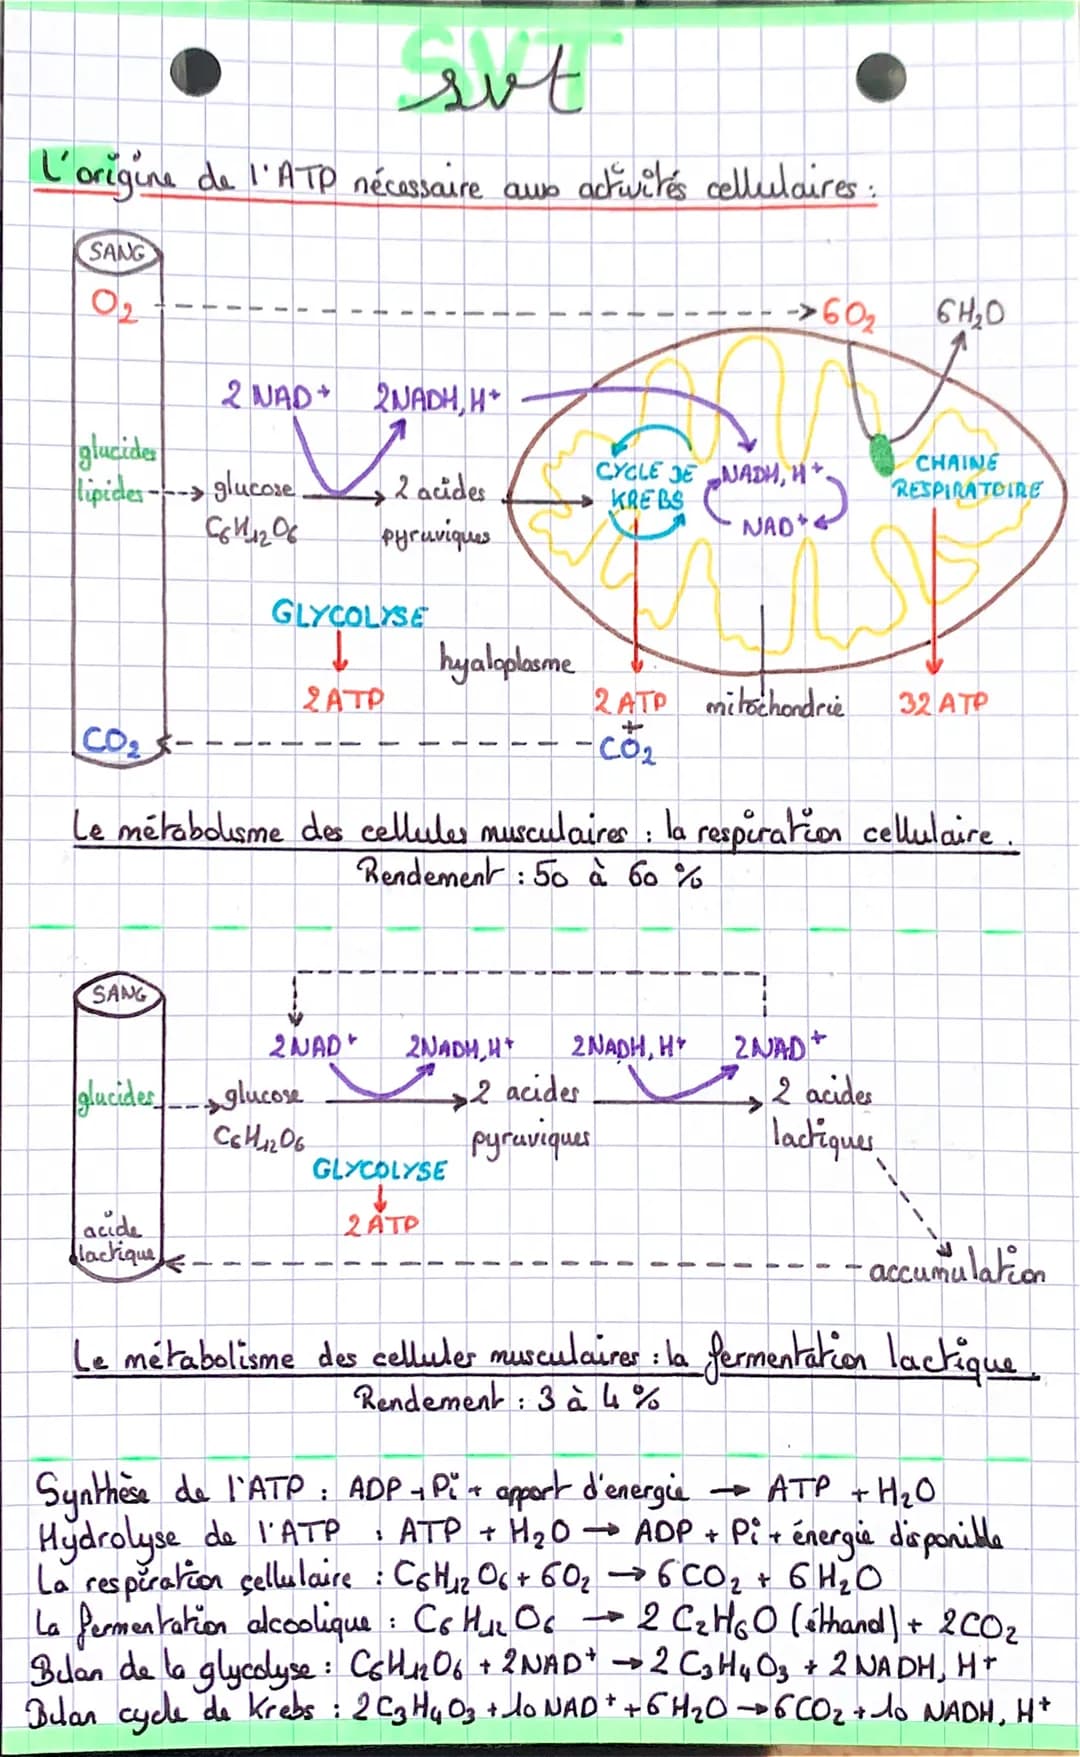 SVT
svt
L'origine de l'ATP nécessaire aux activités cellulaires :
SANG
O2 -> 6O2 6H2O
2 NAD+ 2NADH, H+
glucides
lipides glucose 2 acides
C6H12O6 pyruviques
CYCLE DE
KREBS
NADH, H+
NAD+
CHAINE
RESPIRATOIRE
GLYCOLYSE
hyaloplasme
2 ATP
2 ATP mitochondrie 32 ATP
+
CO2 CO2
Le métabolisme des cellules musculaires : la respiration cellulaire.
Rendement : 50 à 60 %
SANG
2NAD+ 2NADH, H+ 2NADH, H+ 2NAD+
glucides glucose 2 acides 2 acides
C6H12O6 pyruviques lactiques
GLYCOLYSE
2 ATP
acide
lactique
accumulation
Le métabolisme des cellules musculaires : la fermentation lactique.
Rendement : 3 à 4 %
Synthèse de l'ATP : ADP + Pi + apport d'énergie → ATP + H2O
Hydrolyse de l'ATP : ATP + H2O → ADP + Pi + énergie disponible
La respiration cellulaire : C6H12O6 + 6O2 → 6CO2 + 6H2O
La fermentation alcoolique : C6H12O6 → 2 C2H6O (éthanol) + 2CO2
Bilan de la glycolyse : C6H12O6 + 2NAD+ → 2 C3H4O3 + 2 NADH, H+
Bilan cycle de Krebs : 2 C3H4O3 + 10 NAD+ + 6 H2O → 6CO2 + 10 NADH, H+